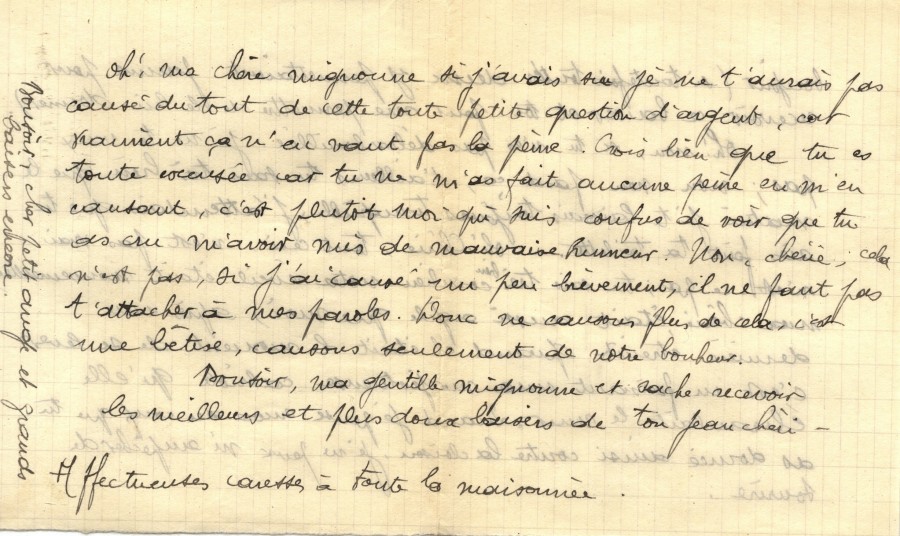 Oh! ma chère mignonne si j'avais su je ne t'aurais pas
causé du tout de cette toute petite question d'argent, car
vraiment ça n'en vaut pas la peine. Crois bien que tu es
toute excusée car tu ne m'as fait aucune peine en m'en
causant, c'est plutôt moi qui suis confus de voir que tu
as cru m'avoir mis de mauvaise humeur. Non, chérie, cela
n'est pas, si j'ai causé un peu brèvement, il ne faut pas
t'attacher à mes paroles. Donc ne causons plus de cela, c'est
une bêtise, causons seulement de notre bonheur.
Bonsoir, ma gentille mignonne et sache recevoir
les meilleurs et plus doux baisers de ton Jean chéri -
Affectueuses caresses à toute la maisonnée.
Bonsoir, cher petit ange et grands
baisers encore.